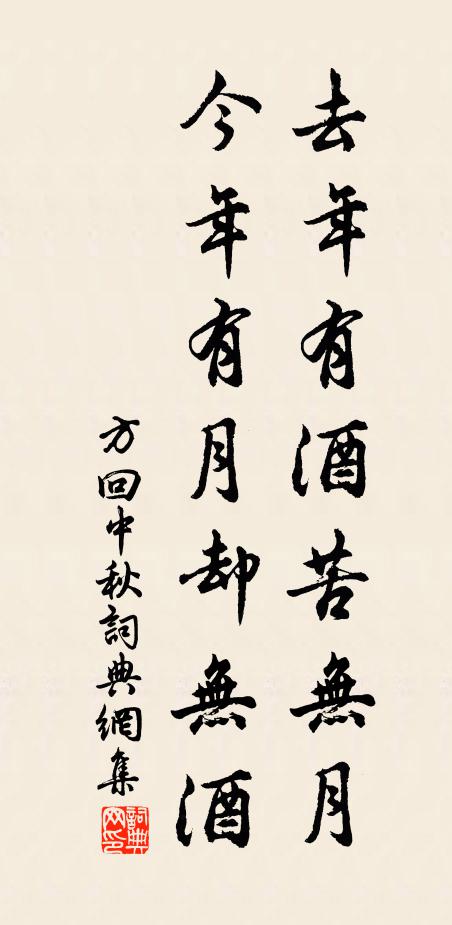 去年有酒苦無月
今年有月却無酒
方回中秋詞典網集
詞典網印